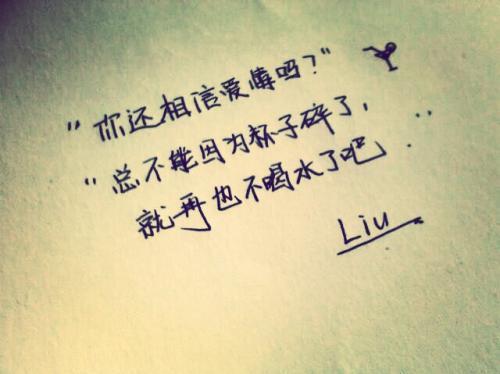 “你还相信爱情吗?”
“总不能因为杯子碎了,
就再也不喝水了吧..”
Liu